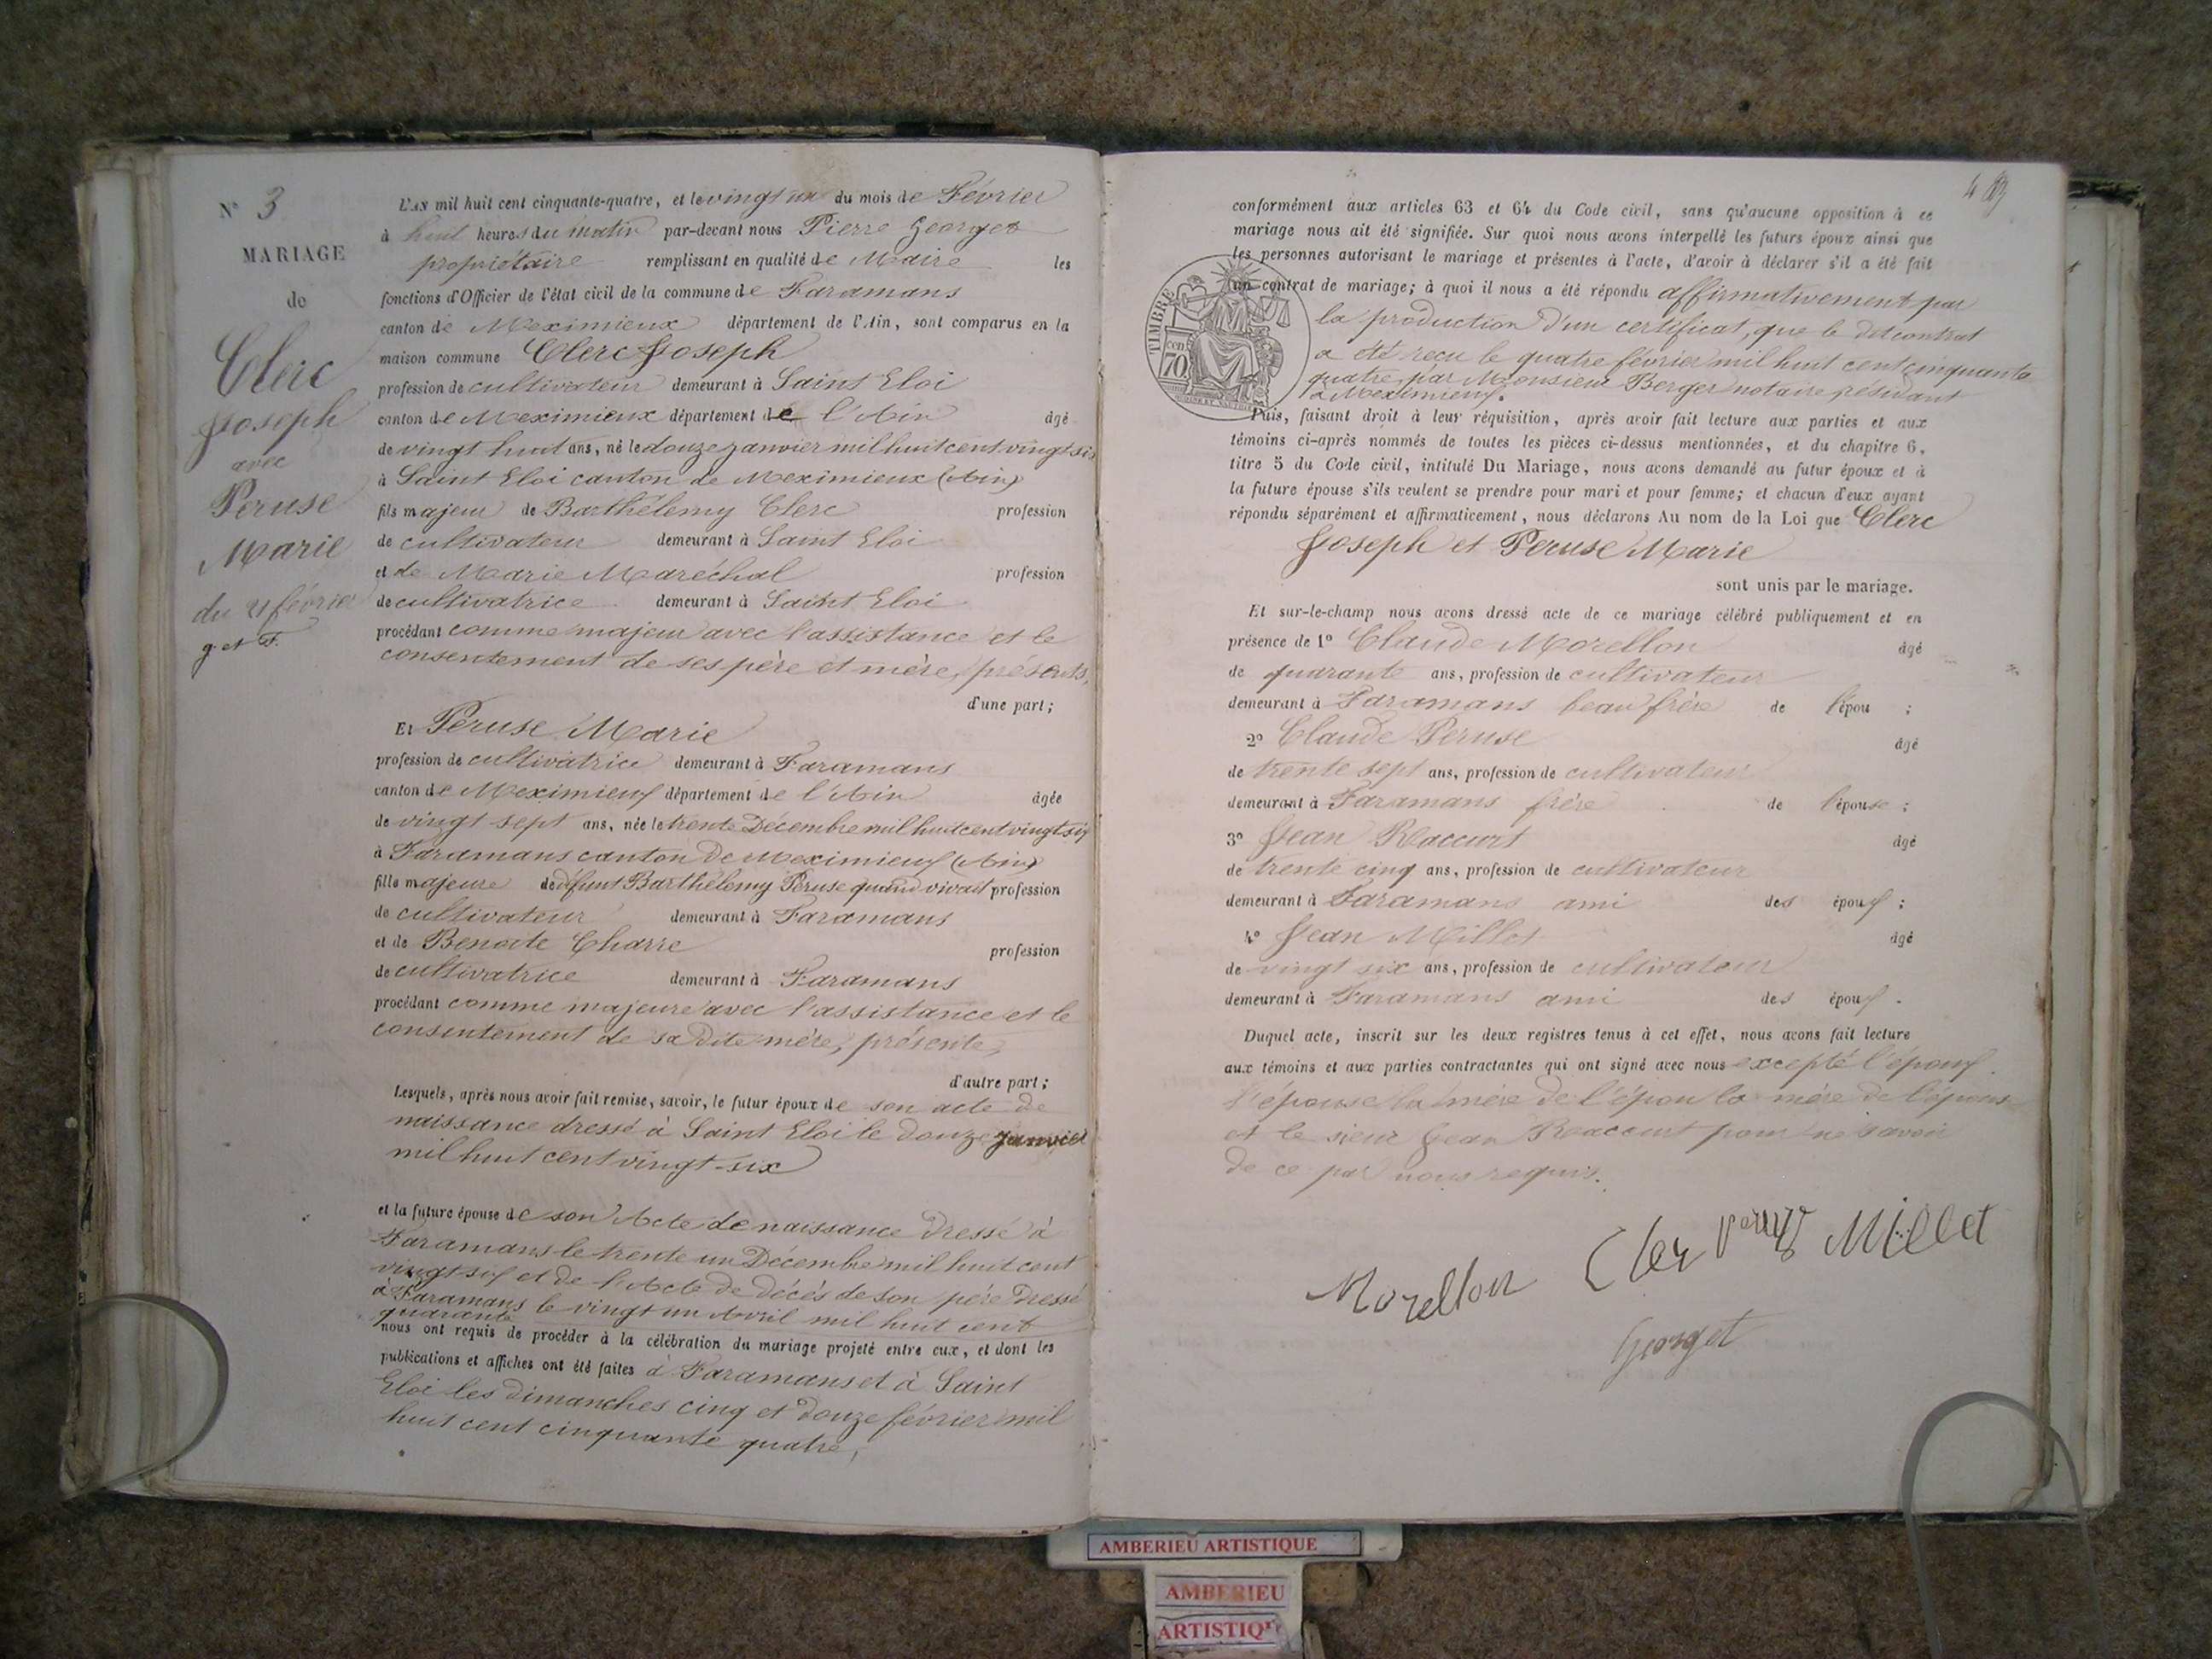 N° 3
MARIAGE
de
Clerc
Joseph
avec
Peruse
Marie
du 21 février
g. et F.
L'AN mil huit cent cinquante-quatre, et le vingt un du mois de Février
à huit heures du matin par-devant nous Pierre Georget
propriétaire remplissant en qualité de Maire les
fonctions d'Officier de l'état civil de la commune de Faramans
canton de Meximieux département de l'Ain, sont comparus en la
maison commune Clerc Joseph
profession de cultivateur demeurant à Saint Eloi
canton de Meximieux département de l'Ain âgé
de vingt huit ans, né le douze janvier mil huit cent vingt six
à Saint Eloi canton de Meximieux (Ain)
fils majeur de Barthélemy Clerc profession
de cultivateur demeurant à Saint Eloi
et de Marie Maréchal profession
de cultivatrice demeurant à Saint Eloi
procédant comme majeur avec l'assistance et le
consentement de ses père et mère, présents,
d'une part;
Et Peruse Marie
profession de cultivatrice demeurant à Faramans
canton de Meximieux département de l'Ain âgée
de vingt sept ans, née le trente Décembre mil huit cent vingt six
à Faramans canton de Meximieux (Ain)
fille majeure de défunt Barthélemy Peruse quand vivait profession
de cultivateur demeurant à Faramans
et de Benoite Charre profession
de cultivatrice demeurant à Faramans
procédant comme majeure avec l'assistance et le
consentement de sa dite mère, présente,
d'autre part;
Lesquels, après nous avoir fait remise, savoir, le futur époux de son acte de
naissance dressé à Saint Eloi le douze janvier
mil huit cent vingt-six
et la future épouse de son Acte de naissance dressé à
Faramans le trente un Décembre mil huit cent
vingt six et de l'Acte de décès de son père dressé
à Faramans le vingt un Avril mil huit cent
quarante
nous ont requis de procéder à la célébration du mariage projeté entre eux, et dont les
publications et affiches ont été faites à Faramans et à Saint
Eloi les dimanches cinq et douze février mil
huit cent cinquante quatre,
conformément aux articles 63 et 64 du Code civil, sans qu'aucune opposition à ce
mariage nous ait été signifiée. Sur quoi nous avons interpellé les futurs époux ainsi que
les personnes autorisant le mariage et présentes à l'acte, d'avoir à déclarer s'il a été fait
un contrat de mariage; à quoi il nous a été répondu affirmativement par
la production d'un certificat, que le dit contrat
a été reçu le quatre février mil huit cent cinquante
quatre par Monsieur Berger notaire résidant
à Meximieux.
TIMBRE
70
Puis, faisant droit à leur réquisition, après avoir fait lecture aux parties et aux
témoins ci-après nommés de toutes les pièces ci-dessus mentionnées, et du chapitre 6,
titre 5 du Code civil, intitulé Du Mariage, nous avons demandé au futur époux et à
la future épouse s'ils veulent se prendre pour mari et pour femme; et chacun d'eux ayant
répondu séparément et affirmativement, nous déclarons Au nom de la Loi que Clerc
Joseph et Peruse Marie
sont unis par le mariage.
Et sur-le-champ nous avons dressé acte de ce mariage célébré publiquement et en
présence de 1° Claude Morellon âgé
de quarante ans, profession de cultivateur
demeurant à Faramans beau frère de l'épou ;
2° Claude Peruse âgé
de trente sept ans, profession de cultivateur
demeurant à Faramans frère de l'épouse ;
3° Jean Raccurt âgé
de trente cinq ans, profession de cultivateur
demeurant à Faramans ami des époux ;
4° Jean Millet âgé
de vingt six ans, profession de cultivateur
demeurant à Faramans ami des époux .
Duquel acte, inscrit sur les deux registres tenus à cet effet, nous avons fait lecture
aux témoins et aux parties contractantes qui ont signé avec nous excepté l'époux
l'épouse la mère de l'épou la mère de l'épouse
et le sieur Jean Raccurt pour ne savoir
de ce par nous requis.
Morellon Cler Peruse Millet
Georget
AMBERIEU ARTISTIQUE
AMBERIEU
ARTISTIQ